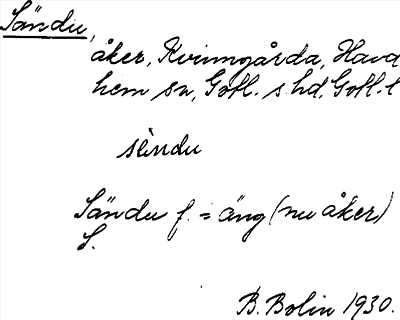 Sändu,
åker, Kvinnngårda, Havd
hem sn, Gotl. s. hd, Gotl. l
sèndu
Sändu f. = äng (nu åker)
S.
B. Bolin 1930.